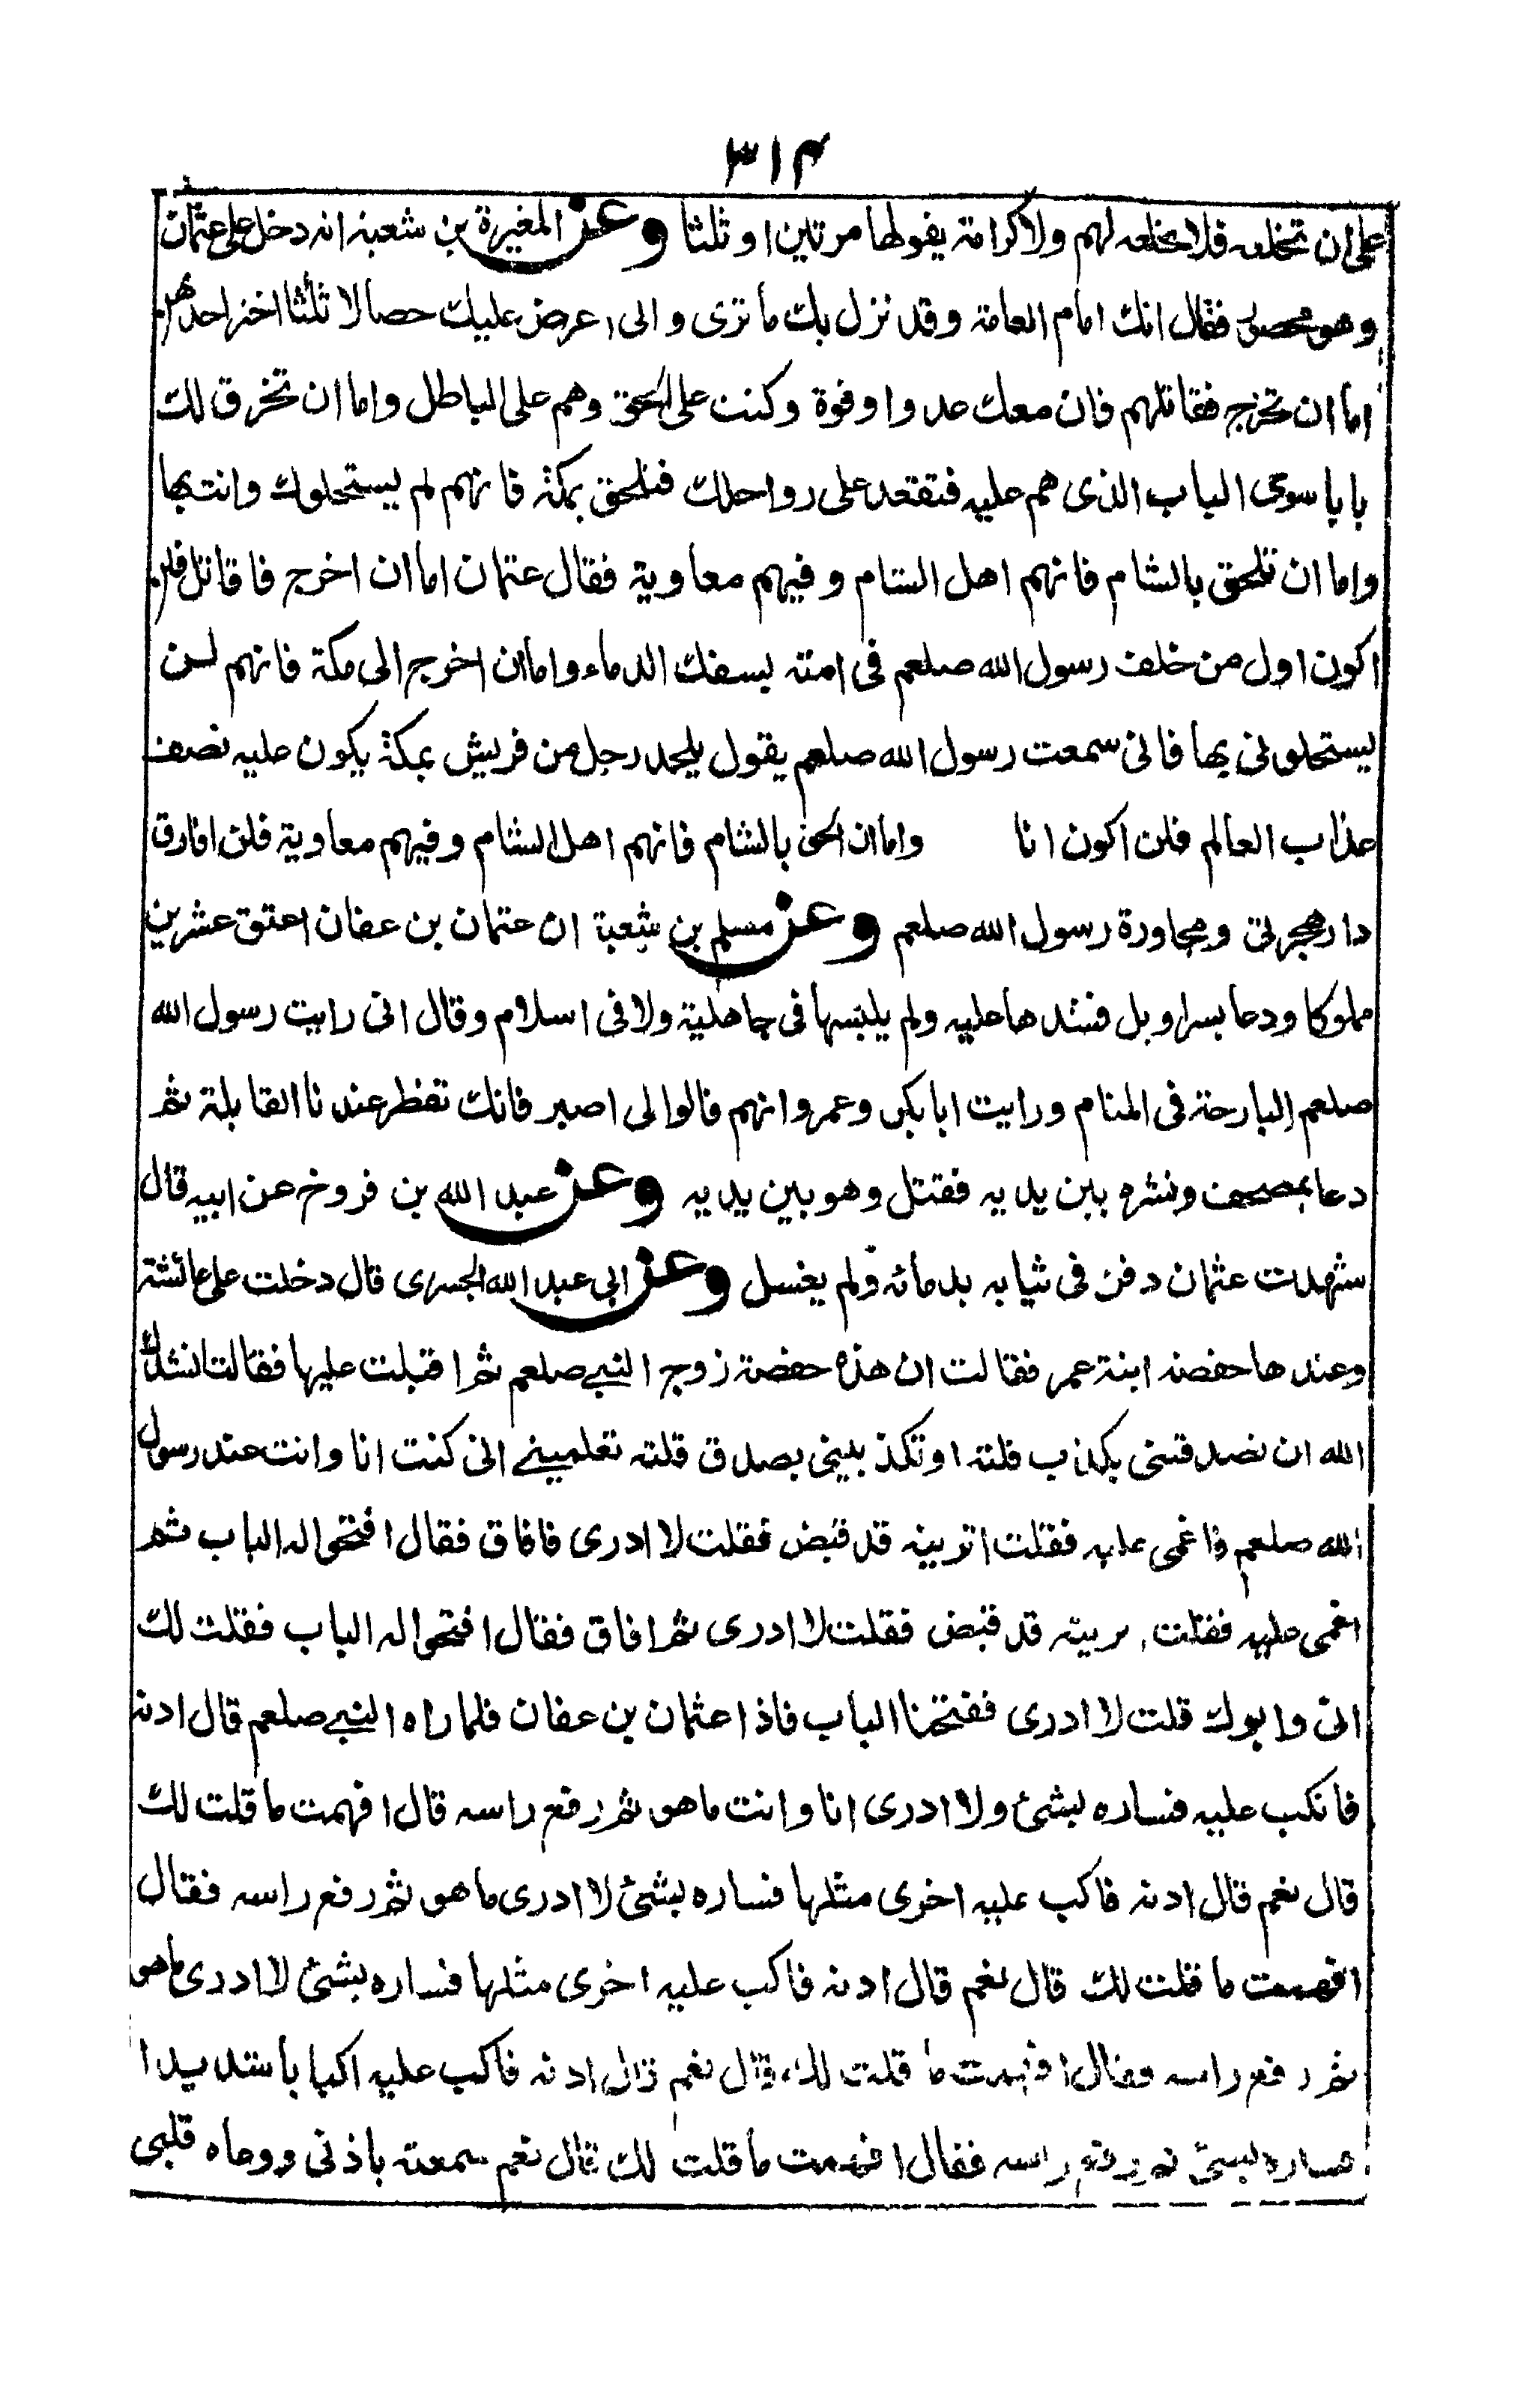 ٣١٤
على ان تخلعه فلا تخلعه لهم ولا كرامة يقولها مرتين او ثلثا وعن المغيرة بن شعبة انه دخل على عثمان
وهو محصور فقال انك امام العامة وقد نزل بك ما ترى والى اعرض عليك خصالا ثلثا اختر احدهن
اما ان تخرج فقاتلهم فان معك عدوا وقوة وكنت على الحق وهم على الباطل واما ان تخرق لك
بابا سوى الباب الذى هم عليه فتقعد على رواحلك فتلحق بمكة فانهم لم يستحلوك وانت بها
واما ان تلحق بالشام فانهم اهل الشام وفيهم معاوية فقال عثمان اما ان اخرج فاقاتل فلن
اكون اول من خلف رسول الله صلعم فى امته بسفك الدماء واما ان اخرج الى مكة فانهم لسن
يستحلونى بها فانى سمعت رسول الله صلعم يقول يلحد رجل من قريش بمكة يكون عليه نصف
عذاب العالم فلن اكون انا واما ان الحق بالشام فانهم اهل الشام وفيهم معاوية فلن افارق
دار هجرتى ومجاورة رسول الله صلعم وعن مسلم بن شعبة ان عثمان بن عفان اعتق عشرين
مملوكا ودعا بسراويل فشدها عليه ولم يلبسها فى جاهلية ولا فى اسلام وقال انى رايت رسول الله
صلعم البارحة فى المنام ورايت ابا بكر وعمر وانهم قالوا لى اصبر فانك تفطر عندنا القابلة ثم
دعا بمصحف ونشره بين يديه فقتل وهو بين يديه وعن عبد الله بن فروخ عن ابيه قال
شهدت عثمان دفن فى ثيابه بدمائه ولم يغسل وعن ابى عبد الله الجسرى قال دخلت على عائشة
وعندها حفصة ابنة عمر فقالت ان هذه حفصة زوج النبى صلعم ثم اقبلت عليها فقالت انشدك
الله ان تصدقنى بكذب قلته او تكذبينى بصدق قلته تعلمينے انى كنت انا وانت عند رسول
الله صلعم فاغمى عليه فقلت اتريينه قد قبض فقلت لا ادرى فافاق فقال افتحوا له الباب ثم
اغمى عليه فقلت قد قبض فقلت لا ادرى ثم افاق فقال افتحوا له الباب فقلت لك
ابى وابوك قلت لا ادرى ففتحنا الباب فاذا عثمان بن عفان فلما راه النبى صلعم قال ادنه
فانكب عليه فساره بشئ ولا ادرى انا وانت ما هو ثم رفع راسه قال افهمت ما قلت لك
قال نعم قال ادنه فاكب عليه اخرى مثلها فساره بشئ لا ادرى ما هو ثم رفع راسه فقال
افهمت ما قلت لك قال نعم قال ادنه فاكب عليه اخرى مثلها فساره بشئ لا ادرى ما هو
ثم رفع راسه فقال افهمت ما قلت لك قال نعم قال ادنه فاكب عليه اكبابا شديدا
فساره بشئ ثم رفع راسه فقال افهمت ما قلت لك قال نعم سمعته باذنى ووعاه قلبى